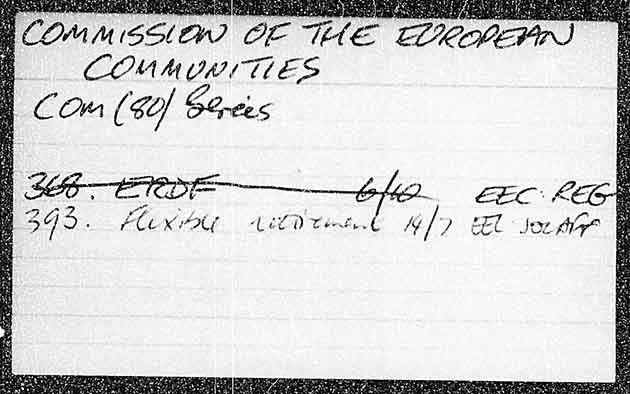 COMMISSION OF THE EUROPEAN
COMMUNITIES
COM (80) Series
368. ERDF 6/10 EEC: REG
393. Flexible retirement 14/7 EEC: SOC AFF